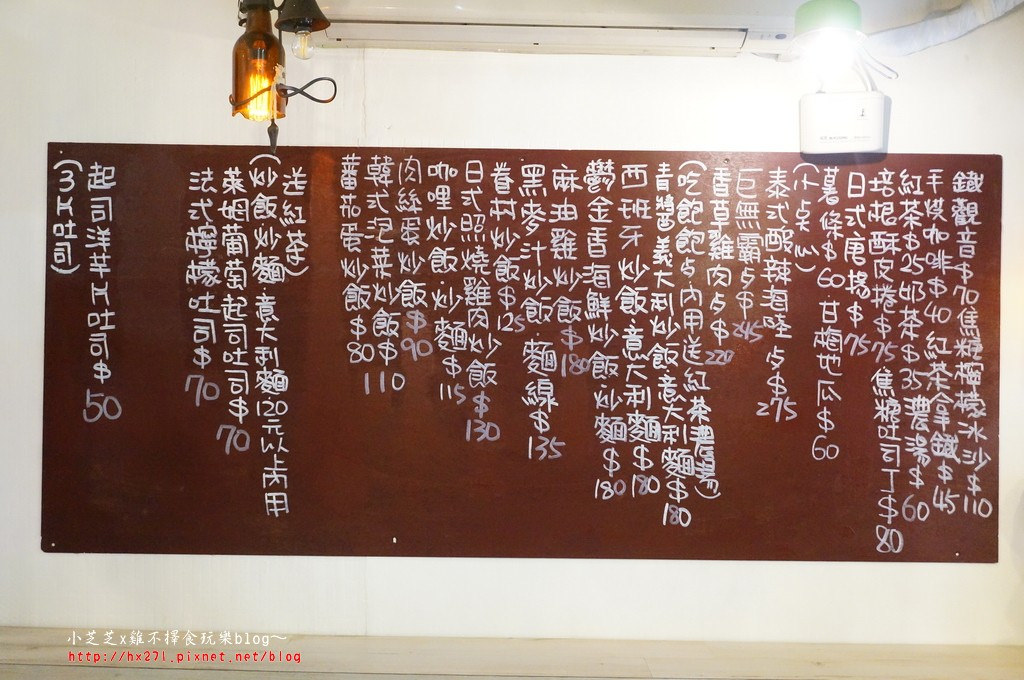 (3片吐司)
起司洋芋片吐司$50
法式檸檬吐司$70
萊姆葡萄起司吐司$70
(炒飯炒麵.意大利麵120元以上內用
送紅茶)
蕃茄蛋炒飯$80
韓式泡菜炒飯$110
肉絲蛋炒飯$90
咖哩炒飯.炒麵$115
日式照燒雞肉炒飯$130
眷村炒飯$125
黑麥汁炒飯.麵線$135
麻油雞炒飯$180
鬱金香海鮮炒飯.炒麵$180
西班牙炒飯.意大利麵$180
青醬義大利炒飯.意大利麵$180
(吃飽飽点.內用送紅茶濃湯)
香草雞肉点$220
巨無霸点$245
泰式酸辣海陸点$275
(小点心)
薯條$60 甘梅地瓜$60
日式唐揚$75
培根酥皮捲$75焦糖吐司丁$80
紅茶$25奶茶$35濃湯$60
咖啡$40紅茶拿鐵$45
鐵觀音$70焦糖檸檬冰沙$110
小芝芝x雞不擇食玩樂blog～
http://hx271.pixnet.net/blog